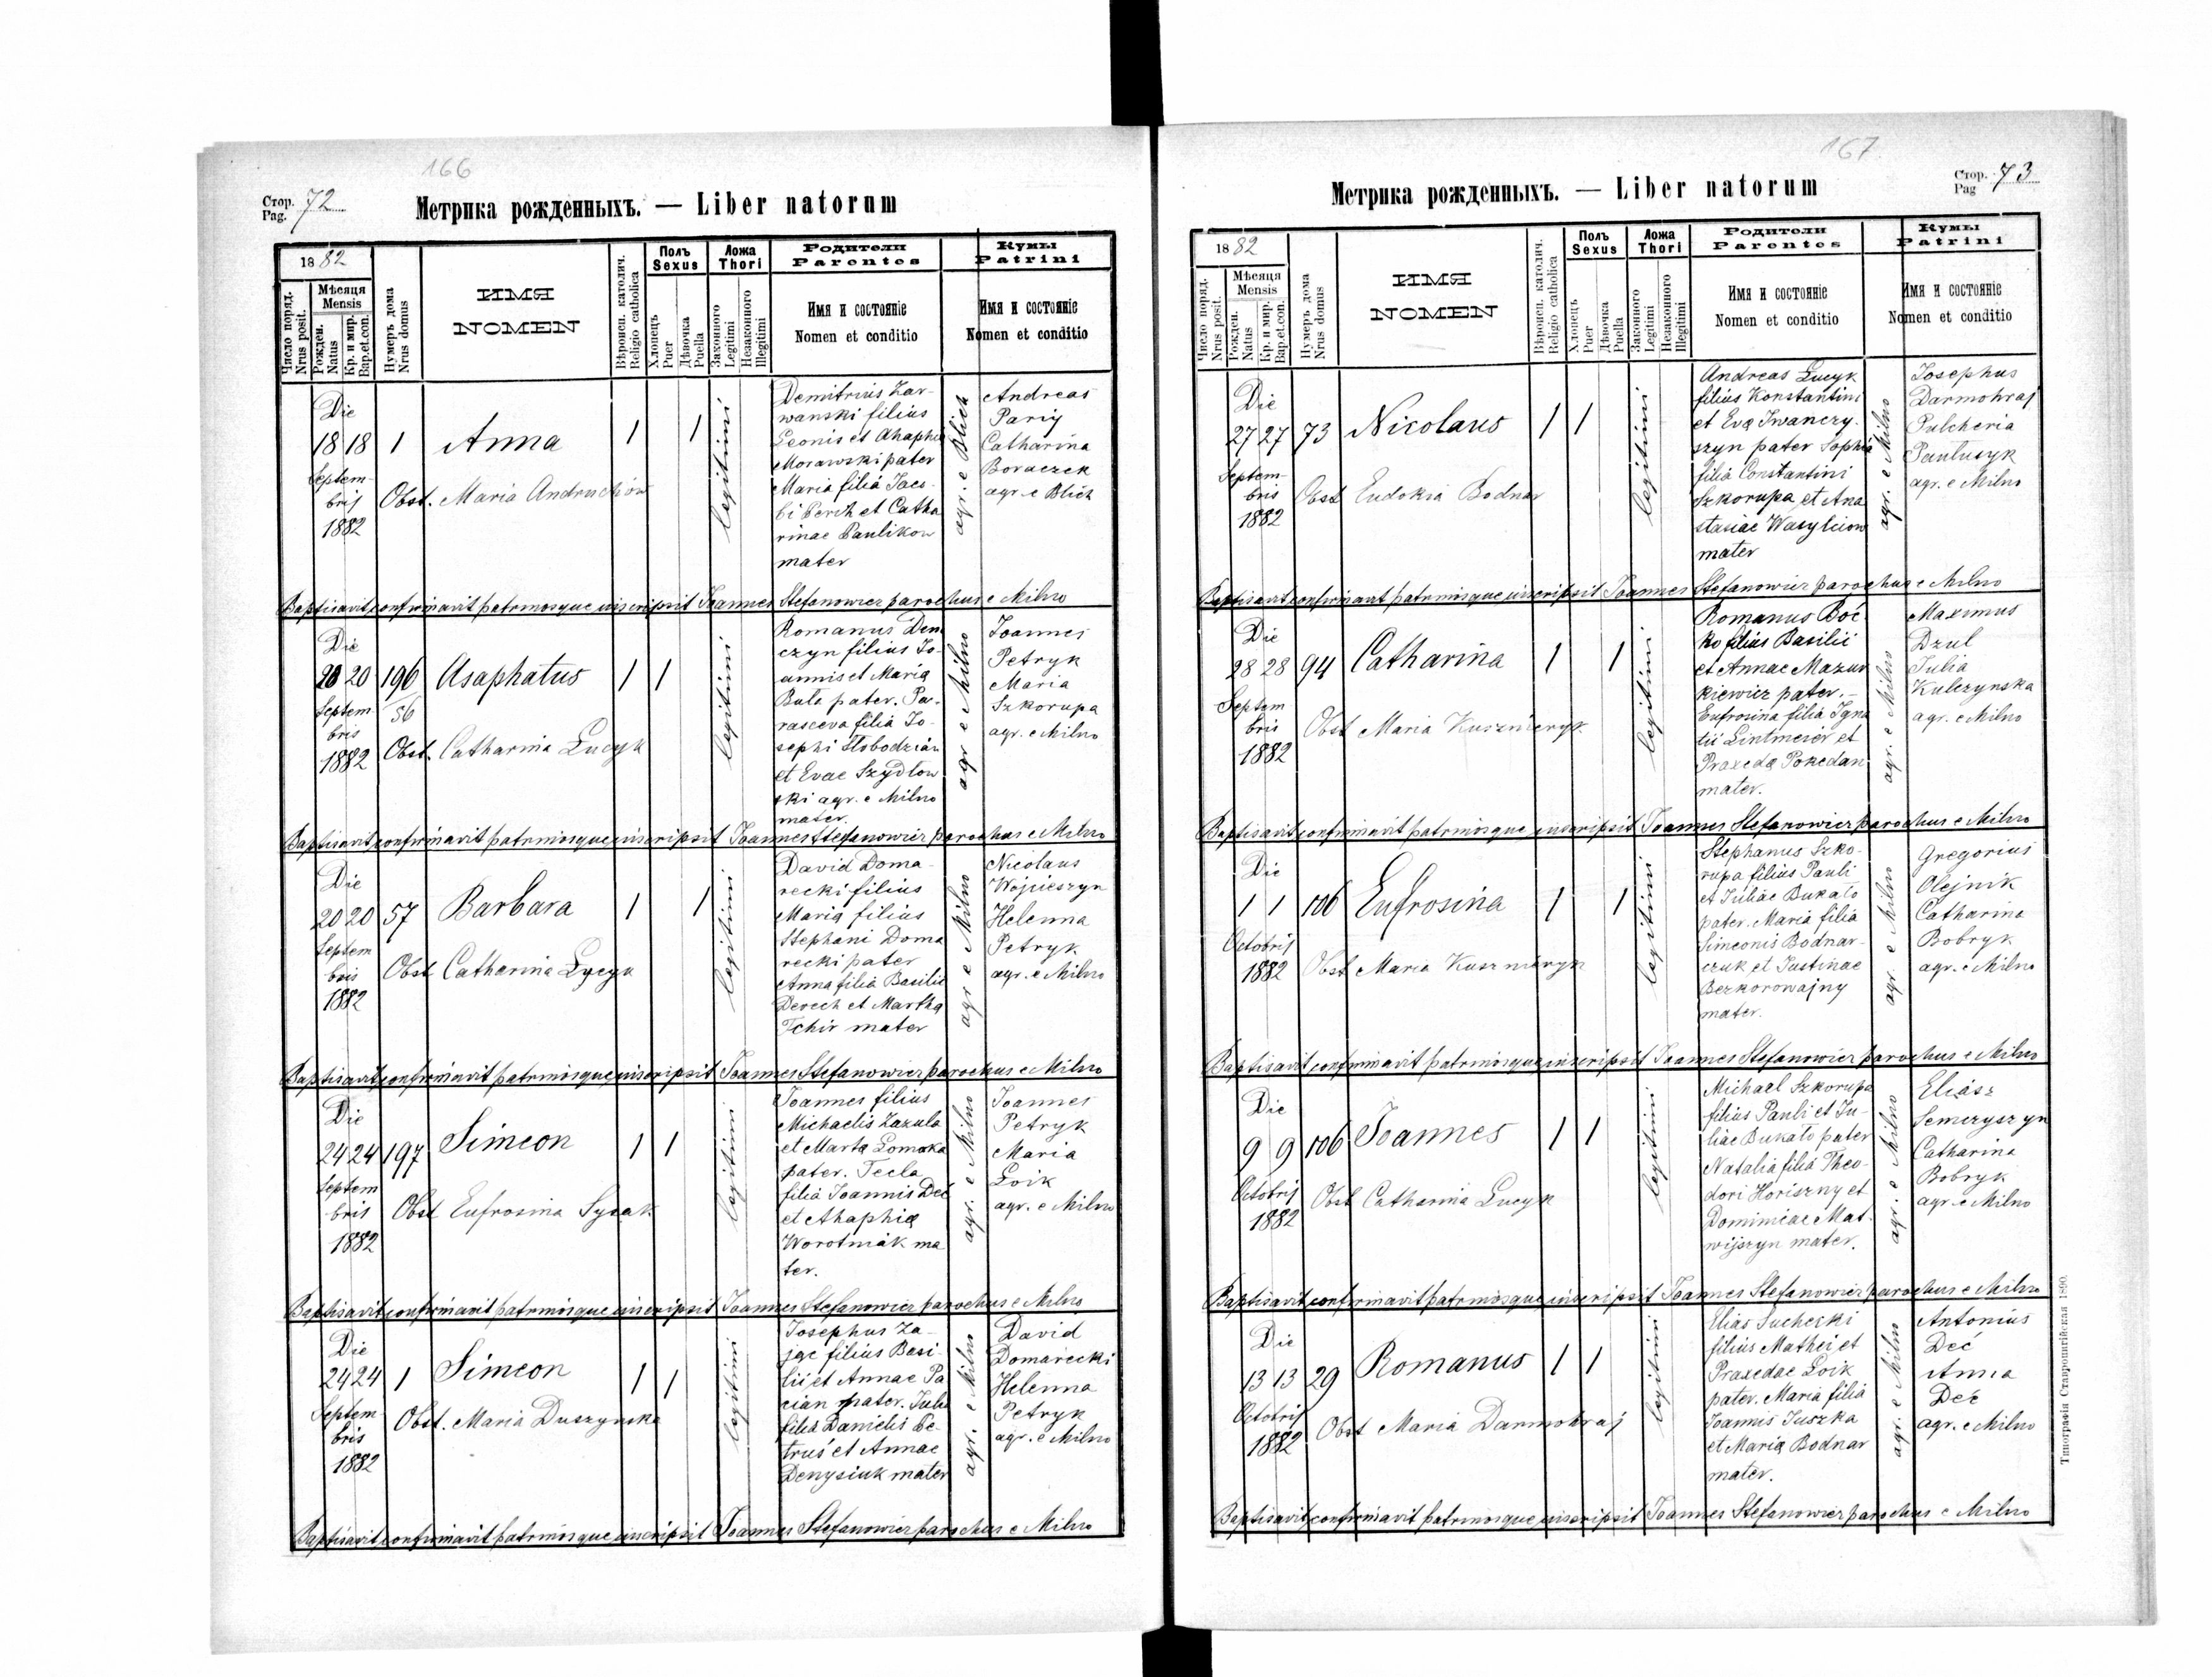 166
Стор. 72
Pag.
Метрика рожденныхъ. — Liber natorum
1882
Число поряд.
Nrus posit.
Мѣсяця
Mensis
Рожден.
Natus
Кр. и мир.
Bap.et.con.
Нумеръ дома
Nrus domus
ИМЯ
NOMEN
Вѣроисп. католич.
Religio catholica
Полъ
Sexus
Хлопецъ
Puer
Дѣвочка
Puella
Ложа
Thori
Законного
Legitimi
Незаконного
Illegitimi
Родители
Parentes
Имя и состояніе
Nomen et conditio
Кумы
Patrini
Имя и состояніе
Nomen et conditio
Die
18 18 1 Anna 1 1
Septem-
brij
1882
Obst. Maria Andruchów
legitimi
Demitrius Zar-
wanski filius
Leonis et Ahaphia
Morawski pater
Maria filia Jaco-
bi Perih et Catha
rinae Paulikow
mater
agr. e Blich
Andreas
Parij
Catharina
Boraczek
agr. e Blich
Baptisavit confirmavit patrinosque inscripsit Joannes Stefanowicz parochus e Milno
Die
20 20 196 Asaphatus 1 1
Septem-
bris
56
1882
Obst. Catharina Lucyk
legitimi
Romanus Dem
czyn filius Jo-
annis et Maria
Buta pater. Pa-
rasceva filia Jo-
sephi Słobodzian
et Evae Szydłow
ski agr. e Milno
mater.
agr e Milno
Joannes
Petryk
Maria
Szkorupa
agr. e Milno
Baptisavit confirmavit patrinosque inscripsit Joannes Stefanowicz parochus e Milno
Die
20 20 57 Barbara 1 1
Septem
bris
1882
Obst Catharina Lycyk
legitimi
David Doma-
recki filius
Maria filius
Stephani Doma
recki pater
Anna filia Basilii
Derech et Martha
Tchir mater
agr e Milno
Nicolaus
Wojcieszyn
Helenna
Petryk
agr. e Milno
Baptisavit confirmavit patrinosque inscripsit Joannes Stefanowicz parochus e Milno
Die
24 24 197 Simeon 1 1
Septem
bris
1882
Obst Eufrosina Sysak
legitimi
Joannes filius
Michaelis Zazula
et Marta Łomaka
pater. Tecla
filia Joannis Deć
et Ahaphia
Worotniak ma
ter.
agr. e Milno
Joannes
Petryk
Maria
Łoik
agr. e Milno
Baptisavit confirmavit patrinosque inscripsit Joannes Stefanowicz parochus e Milno
Die
24 24 1 Simeon 1 1
Septem
bris
1882
Obst. Maria Duszynska
legitimi
Josephus Za-
jąc filius Basi-
lii et Annae Pa
cian pater. Julia
filia Danielis Pe-
truś et Annae
Denysiuk mater
agr. e Milno
David
Domarecki
Helenna
Petryk
agr. e Milno
Baptisavit confirmavit patrinosque inscripsit Joannes Stefanowicz parochus e Milno
167
Стор. 73
Pag
Метрика рожденныхъ. — Liber natorum
1882
Число поряд.
Nrus posit.
Мѣсяця
Mensis
Рожден.
Natus
Кр. и мир.
Bap.et.con.
Нумеръ дома
Nrus domus
ИМЯ
NOMEN
Вѣроисп. католич.
Religio catholica
Полъ
Sexus
Хлопецъ
Puer
Дѣвочка
Puella
Ложа
Thori
Законного
Legitimi
Незаконного
Illegitimi
Родители
Parentes
Имя и состояніе
Nomen et conditio
Кумы
Patrini
Имя и состояніе
Nomen et conditio
Die
27 27 73 Nicolaus 1 1
Septem-
bris
1882
Obst Eudokia Bodnar
legitimi
Andreas Lucyk
filius Konstantini
et Eva Iwanczy-
szyn pater Sophia
filia Constantini
Szkorupa et Ana
stasiae Wasylciow
mater
agr. e Milno
Josephus
Darmohraj
Pulcheria
Paulusyk
agr. e Milno
Baptisavit confirmavit patrinosque inscripsit Joannes Stefanowicz parochus e Milno
Die
28 28 94 Catharina 1 1
Septem
bris
1882
Obst Maria Kusznieryk
legitimi
Romanus Boć
ko filius Basilii
et Annae Mazur
kiewicz pater.-
Eufrosina filia Igna
tii Lintmeier et
Praxeda Pokedan
mater.
agr. e Milno
Maximus
Dzul
Julia
Kulczynska
agr. e Milno
Baptisavit confirmavit patrinosque inscripsit Joannes Stefanowicz parochus e Milno
Die
1 1 106 Eufrosina 1 1
Octobrij
1882
Obst Maria Kuszneryk
legitimi
Stephanus Szko-
rupa filius Pauli
et Juliae Bukato
pater. Maria filia
Simeonis Bodnar-
czuk et Justinae
Bezkorowajny
mater.
agr. e Milno
Gregorius
Olejnik
Catharina
Bobryk
agr. e Milno
Baptisavit confirmavit patrinosque inscripsit Joannes Stefanowicz parochus e Milno
Die
9 9 106 Joannes 1 1
Octobrij
1882
Obst Catharina Lucyk
legitimi
Michael Szkorupa
filius Pauli et Ju-
liae Bukato pater
Natalia filia Theo-
dori Horiszny et
Dominicae Mat-
wijszyn mater.
agr. e Milno
Eliasz
Semczyszyn
Catharina
Bobryk
agr. e Milno
Baptisavit confirmavit patrinosque inscripsit Joannes Stefanowicz parochus e Milno
Die
13 13 29 Romanus 1 1
Octobrij
1882
Obst Maria Darmohraj
legitimi
Elias Sucheski
filius Mathei et
Praxedae Łoik
pater. Maria filia
Joannis Juszka
et Maria Bodnar
mater.
agr. e Milno
Antonius
Deć
Anna
Deć
agr. e Milno
Baptisavit confirmavit patrinosque inscripsit Joannes Stefanowicz parochus e Milno
Типографія Ставропигійская 1890.